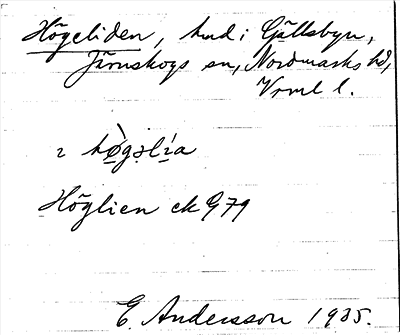 Högeliden, hmd i Gällsbyn,
Järnskogs sn, Nordmarks hd,
Vrml l.
2 hø̀gəlía
Höglien ek G 79
E. Andersson 1935.